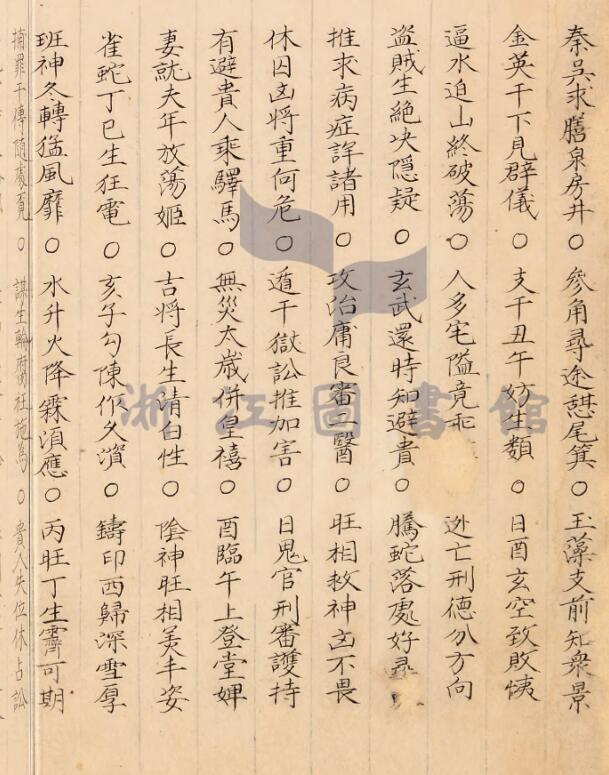 秦吳求膳泉房井○參角尋途憇尾箕○玉藻支前知衆景
金英干下見群儀○支干丑午妨生類○日酉玄空致敗悷
逼水迫山終破蕩○人多宅隘竟乖 迯亡刑德分方向
盜賊生絶决隱疑○玄武還時知避貴○騰蛇落處好尋
推求病症詳諸用○攻治庸良審二醫○旺相救神凶不畏
休囚凶將重何危○遁干獄訟推加害○日鬼官刑審護持
有避貴人乘驛馬○無災太歲併皇禧○酉臨午上登堂婢
妻就夫年放蕩姬○吉將長生請白性○陰神旺相美丰姿
雀蛇丁巳生狂電○亥子勾陳作久濱○鑄印西歸深雪厚
班神冬轉猛風靡○水升火降霖須應○丙旺丁生霽可期
捕罪干傳隨處覓○謀生輪腐社施為○貴人失位休占訟
浙江圖書館